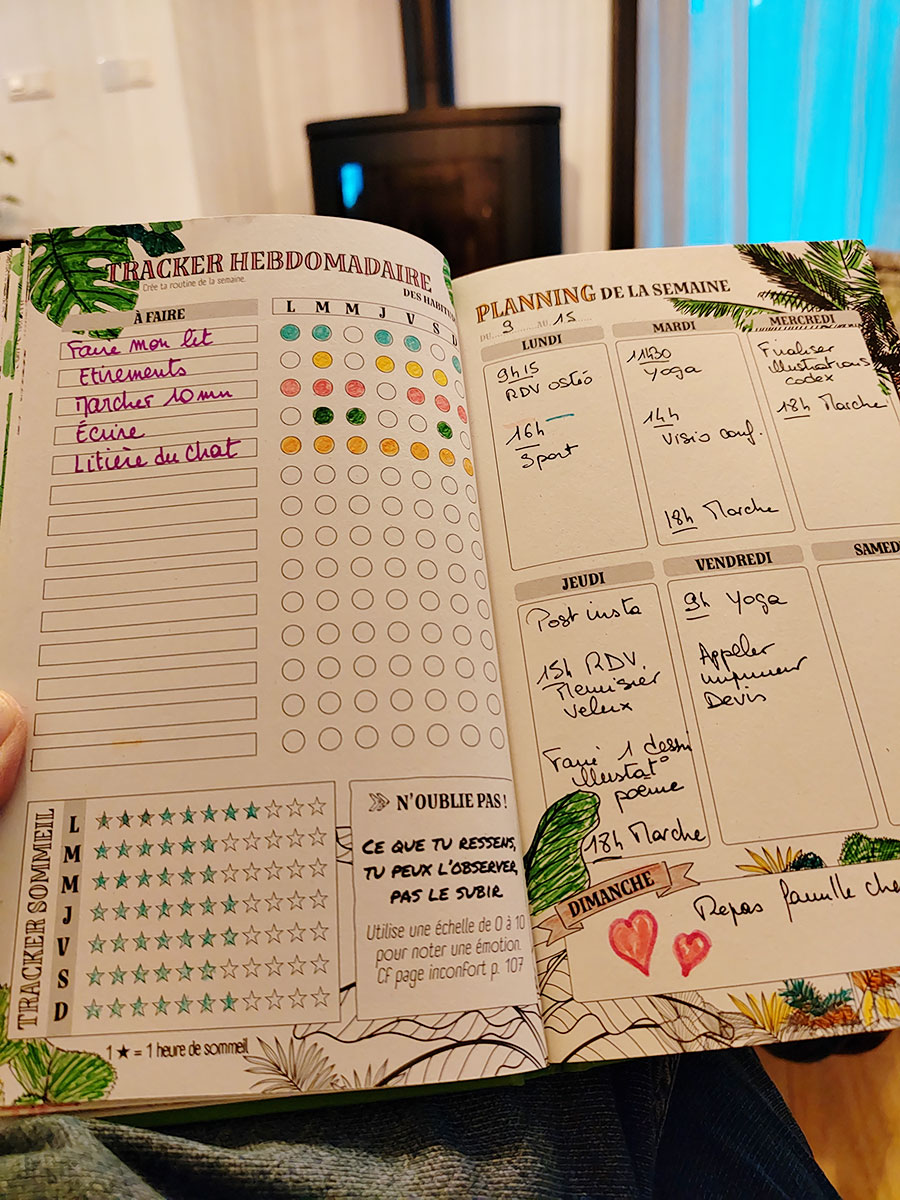 TRACKER HEBDOMADAIRE
DES HABITU
Crée ta routine de la semaine.
À FAIRE
L M M J V S D
Faire mon lit
Etirements
Marcher 10 mn
Écrire
Litière du chat
TRACKER SOMMEIL
L
M
M
J
V
S
D
1 ★ = 1 heure de sommeil
N'OUBLIE PAS !
CE QUE TU RESSENS,
TU PEUX L'OBSERVER,
PAS LE SUBIR
Utilise une échelle de 0 à 10
pour noter une émotion.
CF page inconfort p. 107
PLANNING DE LA SEMAINE
DU 9 AU 15
LUNDI
9h15
RDV ostéo
16h
Sport
MARDI
11h30
Yoga
14h
Visio conf.
18h Marche
MERCREDI
Finaliser
illustrations
codex
18h Marche
JEUDI
Post insta
15h RDV.
Menuisier
velux
Faire 1 dessin
illustat°
poème
18h Marche
VENDREDI
9h Yoga
Appeler
imprimeur
Devis
SAMED
DIMANCHE
Repas famille che